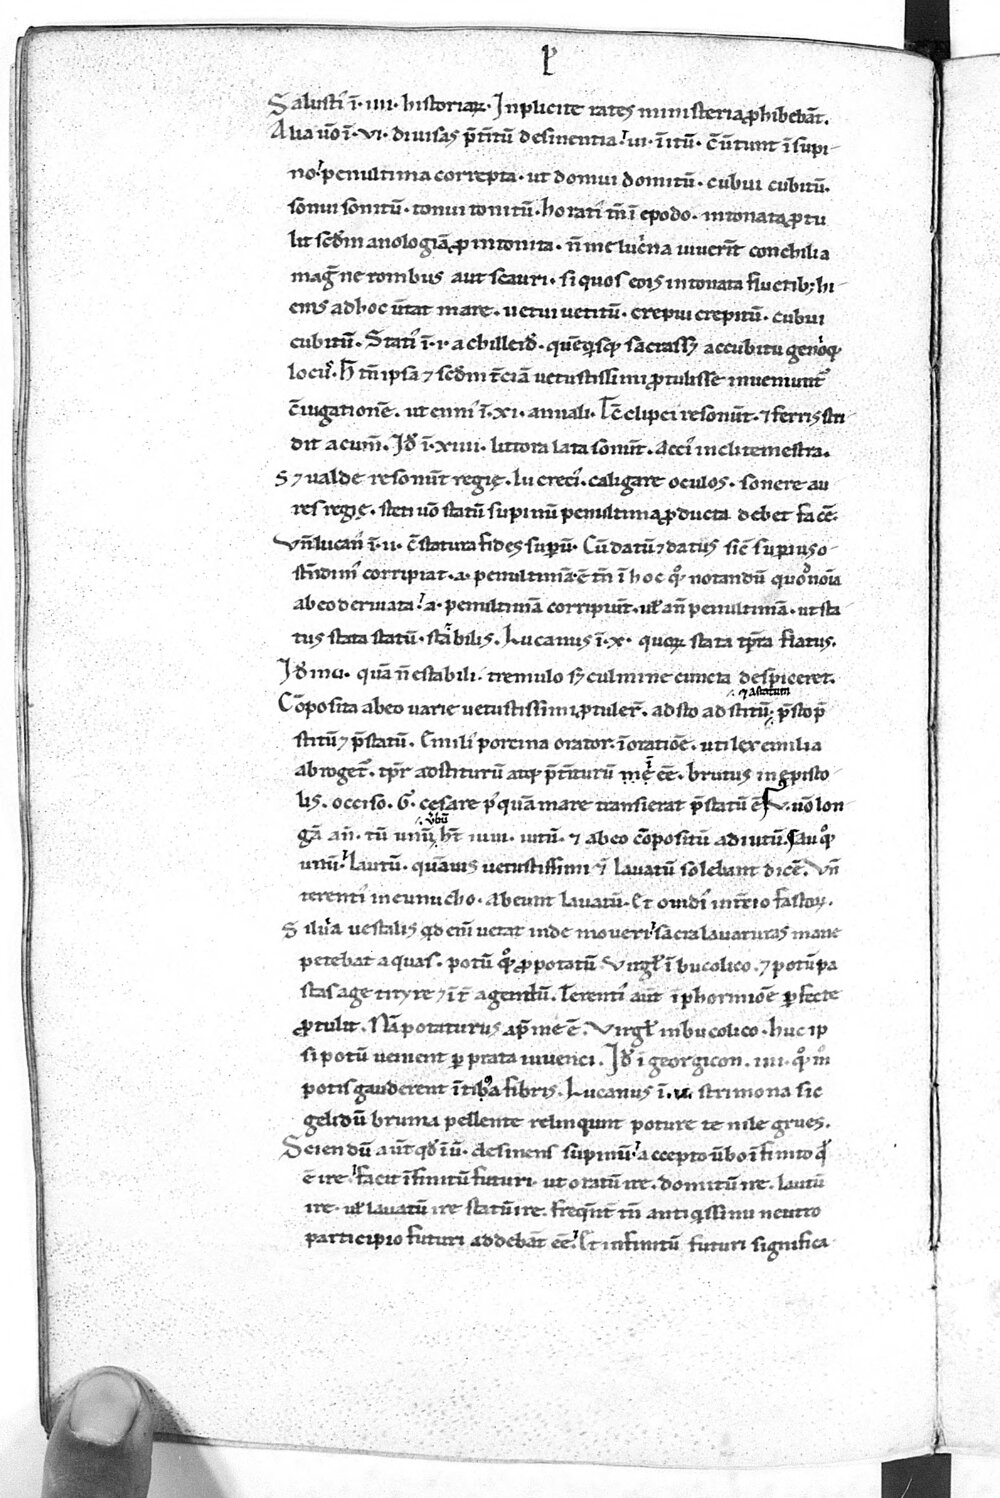 P
Salusti᾽ ī · iiii · historiaꝝ · Inplicite rates ministeria ꝓhibebāt.
Alia ūo ī · vi · divisas p̄titū desinentia · ui · ī itū · c̄ūtunt ī supi-
no · penultima correpta · ut domui domitū · cubui cubitū.
sonui sonitū · tonui tonitū · horati᾽ tn̄ ī epodo · intonata ꝓtu
lit sed᾽m anologiā ꝓ intonita · n̄ me luc̓na iuverīt conchilia
mag᾽ ne rombus aut scauri · si quos eois intonata fluctib; hi-
ems ad hoc ūtat mare · uetui uetitū · crepui crepitū · cubui
cubitū · Stati᾽ ī · i · achilleid᾽ · accubitu geni᾽oq᾽
loci᾽ · h̄ tn̄ ipsa ⁊ sed᾽m t̄ciā uetustissimi ꝓtulisse inueniunt᾽
c̄iugationē · ut enni᾽ ī · xi · annali · Tc̄ clipei resonūt · ⁊ ferri stri
dit acum̄ · Id᾽ ī · xiiii · littora lata sonūt · Acci᾽ in clitemestra.
S⁊ ualde resonūt regię · lucreci᾽ · caligare oculos · sonere au
res regię · steti uō statū supinū penultima ꝓducta debet facē:
Vn̄ lucan᾽ ī · ii · c̄statura fides sup̄ū · Cū datū ⁊ datus sic̄ superius o-
st̄ndim᾽ corripiat · a · penultimā · c̄ tn̄ ī hoc q᾽ notandū quo᾽ noīa
ab eo deriuata · a · penultimā corripiūt · ul᾽ an̄ penultimā · ut sta
tus stata statū · stabilis · Lucanus ī · x · quoꝝ stata tp̄ra flatus.
Id᾽ in · i · quā n̄ estabili · tremulo s; culmine cuncta despiceret.
⁊ astatum
Cōposita ab eo uarie uetustissimi ꝓtuler̄ · adsto adstitū; p̄sto p̄
stitū ⁊ p̄statū · Emili᾽ porcina orator · ī oratiōe · uti lex emilia
abroget᾽ · tp̄r adstiturū atq; p̄titurū mē ēē · brutus in episto
lis · occiso · G᾽ · cesare p᾽quā mare transierat p̄statū ē · V · uō lon
v̄bū
gā an̄ · tū unū; h̄t iuui · iutū · ⁊ ab eo cōpositū adiutū · Lauo q᾽
unū · lautū · quāuis uetustissimi ⁊ lauatū solebant dicē · Vn̄
terenti᾽ in eunucho · Abeunt lauatū · Et ouidi᾽ in t̄cio fastoꝝ.
Siluia uestalis qd᾽ enī uetat inde moueri sacra lauaturas mane
petebat aquas · potū q᾽ ꝓ potatū Virgil᾽ ī bucolico · ⁊ potū pa
stas age tityre ⁊ īt᾽ agendū · Terenti᾽ aūt ī phormiōe perfecte
ꝓtulit · Nā potaturus ap̄ me ē · Virgil᾽ in bucolico · huc ip
si potū uenient per prata iuuenci · Id᾽ ī georgicon · iiii · q᾽ m᾽
potis gauderent īt᾽iba fibris · Lucanus ī · v · strimona sic
gelidū bruma pellente relinquunt poture te nile grues.
Sciendū aūt qd᾽ ī ū · desinens supinū accepto ūbo īfinito q᾽
ē ire facit īfinitū futuri · ut oratū ire · domitū ire · lautū
ire · ul᾽ lauatū ire statū ire · freq̄nt᾽ tn̄ antiquissimi neutro
participio futuri addebāt ēē · Et infinitū futuri significa